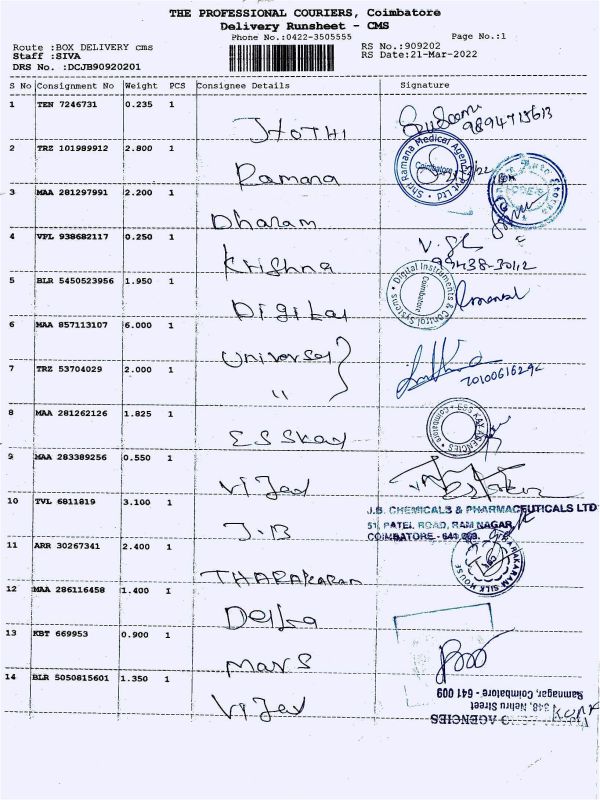 THE PROFESSIONAL COURIERS, Coimbatore
Delivery Runsheet - CMS
Phone No.:0422-3505555
Page No.:1
Route :BOX DELIVERY cms
RS No.:909202
Staff :SIVA
RS Date:21-Mar-2022
DRS No. :DCJB90920201
S No Consignment No Weight PCS Consignee Details Signature
1 TEN 7246731 0.235 1 JYOTHI
9894715613
2 TRZ 101989912 2.800 1 Ramana
Shri Ramana Medical Agency Pvt Ltd
Coimbatore
3 MAA 281297991 2.200 1 Dharam
4 VPL 938682117 0.250 1 Krishna
99438-30112
5 BLR 5450523956 1.950 1 Digital
Digital Instruments & Control Systems
Coimbatore
6 MAA 857113107 6.000 1 Universal
7 TRZ 53704029 2.000 1 "
8 MAA 281262126 1.825 1 ESSKay
ESS KAY AGENCIES
Coimbatore
9 MAA 283389256 0.550 1 Vijay
10 TVL 6811819 3.100 1 J.B
J.B. CHEMICALS & PHARMACEUTICALS LTD
51, PATEL ROAD, RAM NAGAR,
COIMBATORE - 641 009.
11 ARR 30267341 2.400 1 THARAKARAM
THARAKARAM SILK HOUSE
12 MAA 286116458 1.400 1 Delta
13 KBT 669953 0.900 1 Mars
14 BLR 5050815601 1.350 1 Vijay
Ramnagar, Coimbatore - 641 009
348, Nehru Street
AGENCIES